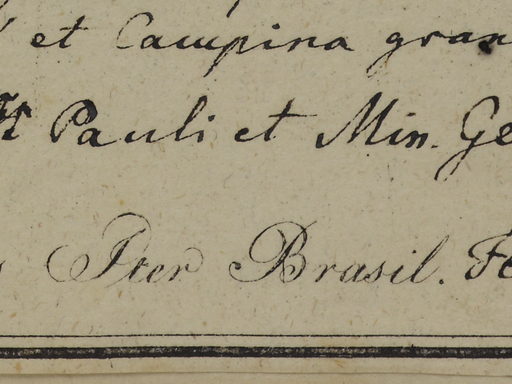 et Campina gran
Pauli et Min. Ge
Iter Brasil. Fe